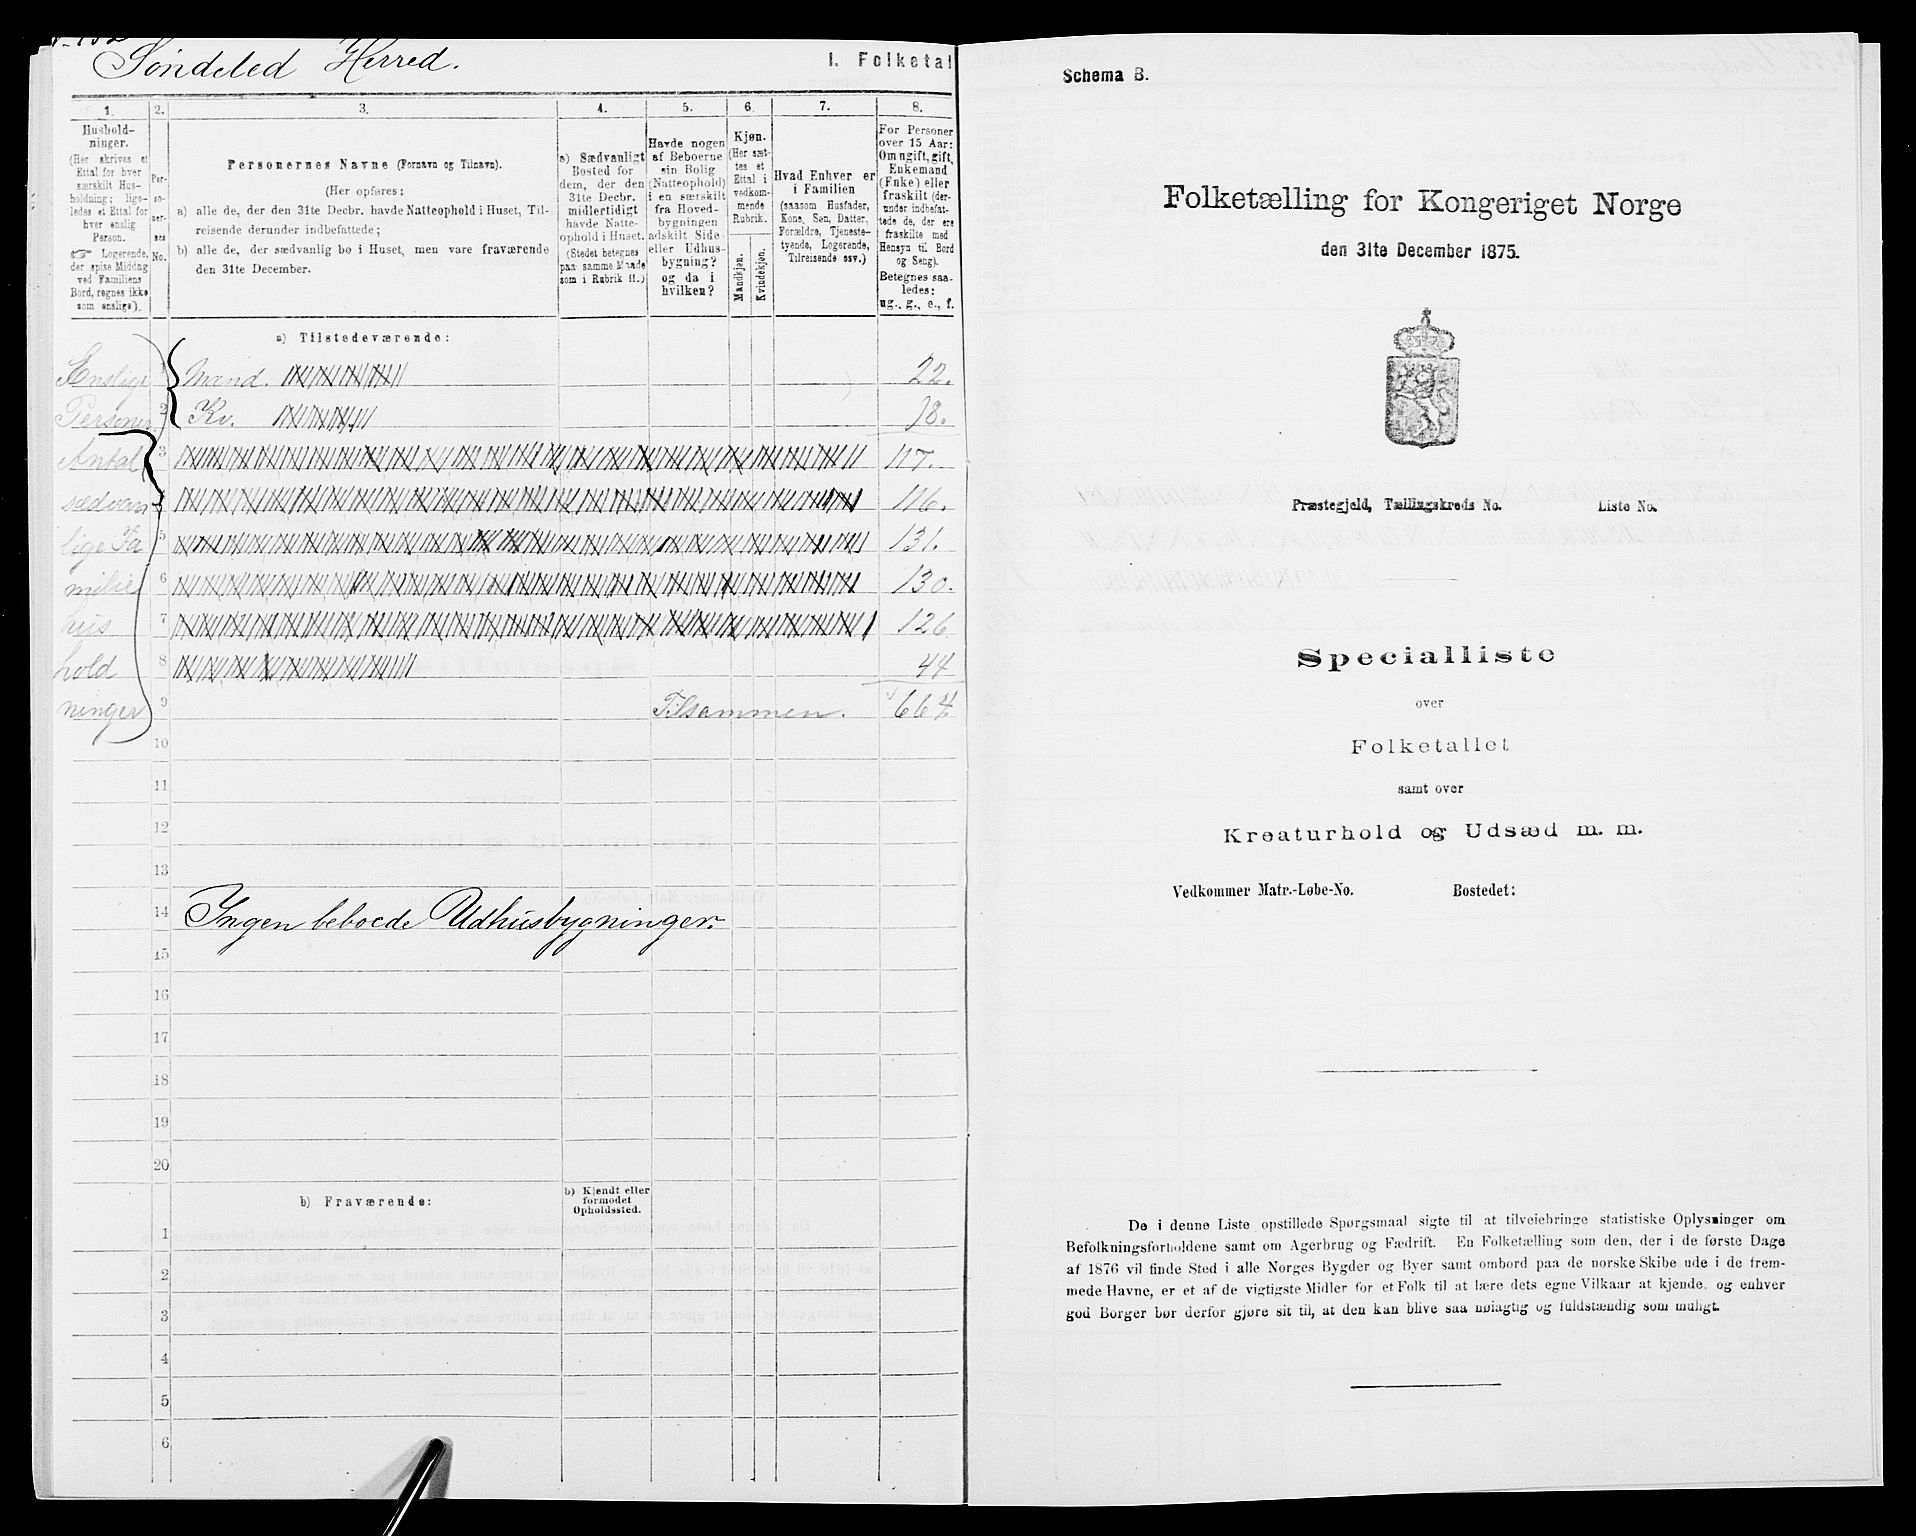 Søndeled Herred.
I. Folketal
1.
2.
3.
4.
5.
6.
7.
8.
Hushold-
ninger.
(Her skrives et
Ettal for hver
særskilt Hus-
holdning; lige-
ledes et Ettal for
hver enslig
Person.
☞ Logerende,
der spise Middag
ved Familiens
Bord, regnes ikke
som enslige).
Per-
so-
ner-
nes
No.
Personernes Navne (Fornavn og Tilnavn).
(Her opføres:
a) alle de, der den 31te Decbr. havde Natteophold i Huset, Til-
reisende derunder indbefattede;
b) alle de, der sædvanlig bo i Huset, men vare fraværende
den 31te December.
a) Sædvanligt
Bosted for
dem, der den
31te Decbr.
midlertidigt
havde Natte-
ophold i Huset.
(Stedet betegnes
paa samme Maade
som i Rubrik 11.)
Havde nogen
af Beboerne
sin Bolig
(Natteophold)
i en særskilt
fra Hoved-
bygningen
adskilt Side-
eller Udhus-
bygning?
og da i
hvilken?
Kjøn.
(Her sæt-
tes et
Ettal i
vedkom-
mende
Rubrik.
Mandkjøn.
Kvindekjøn.
Hvad Enhver er
i Familien
(saasom Husfader,
Kone, Søn, Datter,
Forældre, Tjeneste-
tyende, Logerende,
Tilreisende osv.)
For Personer
over 15 Aar:
Om ugift, gift,
Enkemand
(Enke) eller
fraskilt (der-
under indbefat-
tede de, der ere
fraskilte med
Hensyn til Bord
og Seng).
Betegnes saa-
ledes:
ug., g., e., f.
a) Tilstedeværende:
Enslige 1 Mænd. 22.
Personer 2 Kv. 18.
Antal 3 117.
sædvan 4 116.
lige Fa 5 131.
milie 6 130.
hus 7 126
hold 8 44
ninger 9 Tilsammen. 664
10
11
12
13
14 Ingen beboede Udhusbygninger.
15
16
17
18
19
20
b) Fraværende:
b) Kjendt eller
formodet
Opholdssted.
1
2
3
4
5
6
Schema B.
Folketælling for Kongeriget Norge
den 31te December 1875.
Præstegjeld, Tællingskreds No. Liste No.
Specialliste
over
Folketallet
samt over
Kreaturhold og Udsæd m. m.
Vedkommer Matr.-Løbe-No. Bostedet:
De i denne Liste opstillede Spørgsmaal sigte til at tilveiebringe statistiske Oplysninger om
Befolkningsforholdene samt om Agerbrug og Fædrift. En Folketælling som den, der i de første Dage
af 1876 vil finde Sted i alle Norges Bygder og Byer samt ombord paa de norske Skibe ude i de frem-
mede Havne, er et af de vigtigste Midler for et Folk til at lære dets egne Vilkaar at kjende, og enhver
god Borger bør derfor gjøre sit til, at den kan blive saa nøiagtig og fuldstændig som muligt.